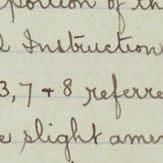 portion of th
l Instruction
3, 7 + 8 referre
e slight ame